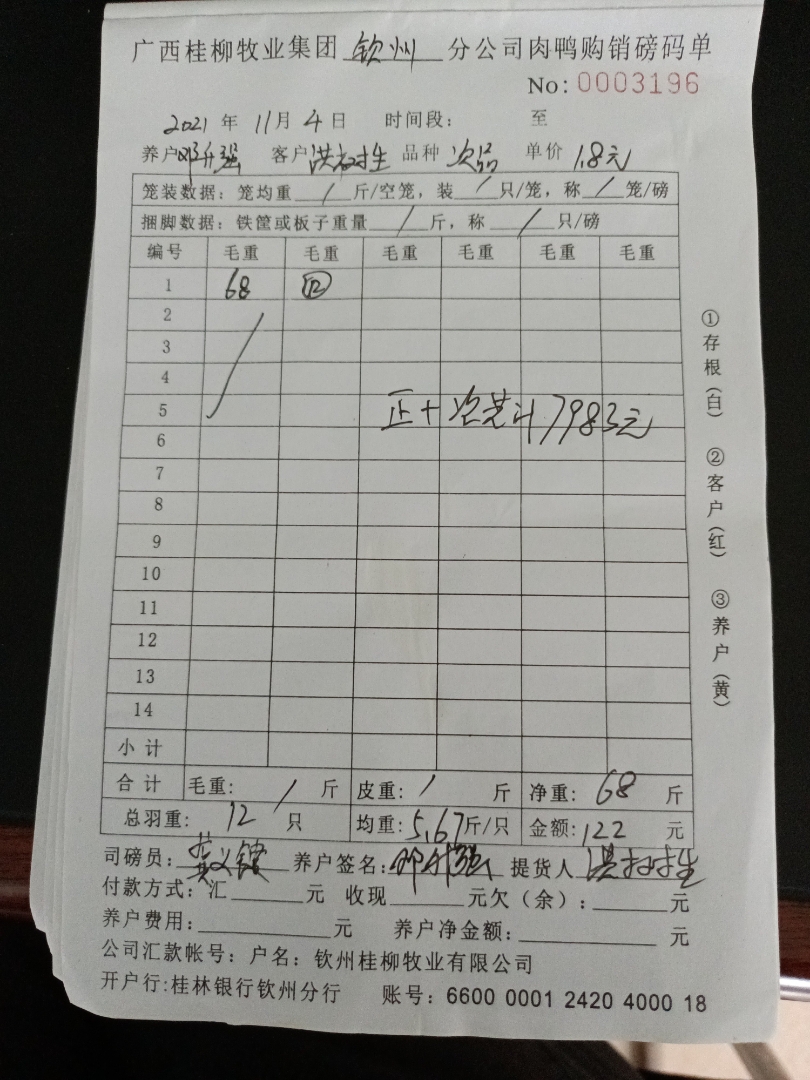 广西桂柳牧业集团 钦州 分公司肉鸭购销磅码单
No: 0003196
2021 年 11月 4 日 时间段: 至
养户 邓升强 客户 洪 生 品种 次品 单价 1.8元
笼装数据: 笼均重 / 斤/空笼, 装 / 只/笼, 称 / 笼/磅
捆脚数据: 铁筐或板子重量 / 斤, 称 / 只/磅
编号 毛重 毛重 毛重 毛重 毛重 毛重
1 68 ⑫
2
3
4
5 正十次共计7983元
6
7
8
9
10
11
12
13
14
小 计
合 计 毛重: / 斤 皮重: / 斤 净重: 68 斤
总羽重: 12 只 均重: 5.67斤/只 金额: 122 元
司磅员: 养户签名: 邓升强 提货人 洪 生
付款方式: 汇 元 收现 元欠(余): 元
养户费用: 元 养户净金额: 元
公司汇款帐号: 户名: 钦州桂柳牧业有限公司
开户行:桂林银行钦州分行 账号: 6600 0001 2420 4000 18
①存根(白) ②客户(红) ③养户(黄)